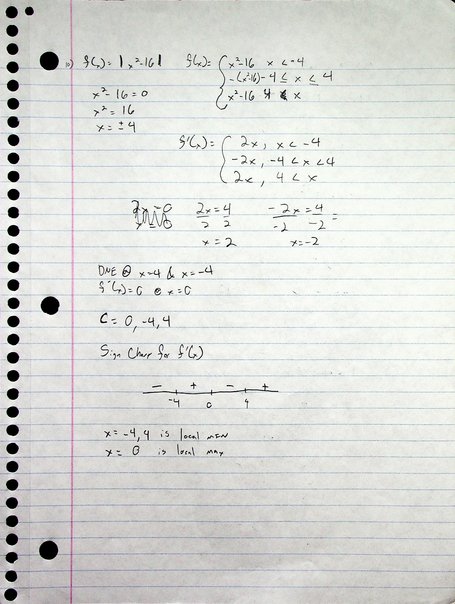 10) f(x) = | x²-16 |   f(x) = { x²-16   x < -4
-(x²-16) -4 ≤ x ≤ 4
x²-16 = 0   x²-16   4 < x
x² = 16
x = ± 4
f'(x) = { 2x, x < -4
-2x, -4 < x < 4
2x, 4 < x
2x = 4   -2x = 4 =
2   2   -2   -2
x = 2   x = -2
DNE @ x=4 & x=-4
f'(x) = 0 @ x=0
C = 0, -4, 4
Sign Chart for f'(x)
-   +   -   +
-4   0   4
x = -4, 4 is local min
x = 0 is local max